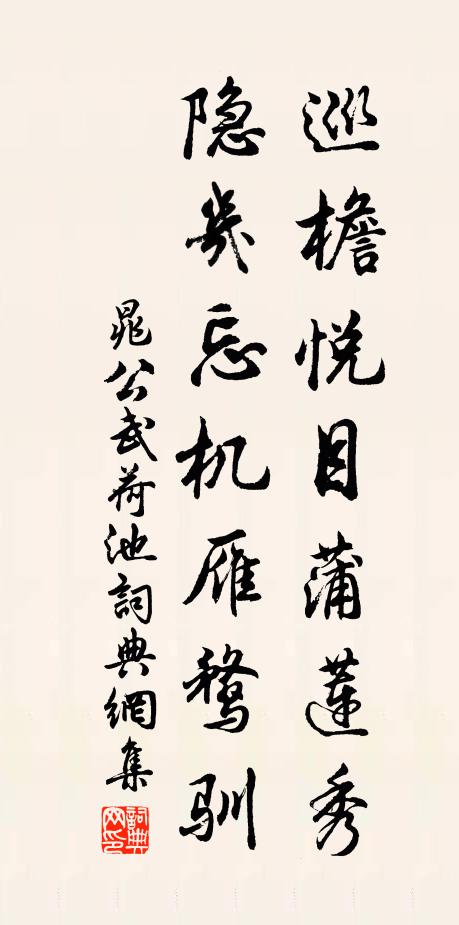 巡檐悦目蒲蓮秀
隐幾忘机雁鶩馴
晁公武荷池詞典網集
詞典网印